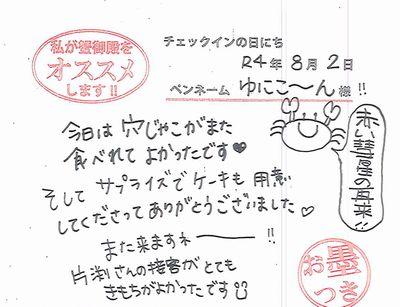 私が蟹御殿を
オススメ
します!!
チェックインの日にち
R4年 8月 2日
ペンネーム ゆにこ〜ん 様!!
赤い彗星の再来!!
今日は穴じゃこがまた
食べれて よかったです♥
そして サプライズで ケーキも 用意
してくださって ありがとうございました♡
また来ますネ――― !!
片渕さんの接客がとても
きもちがよかったです
お墨つき